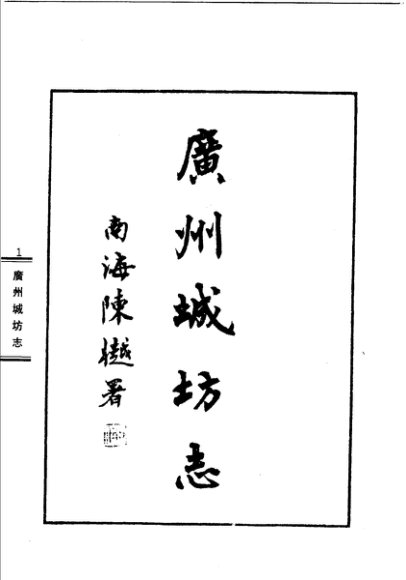 廣州城坊志
南海陳樾署
1
廣州城坊志